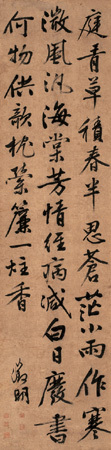 庭青草積春半思蒼茫小雨作寒
微風汎海棠芳情經病減白日廢書
何物供欹枕縈簾一炷香
徵明